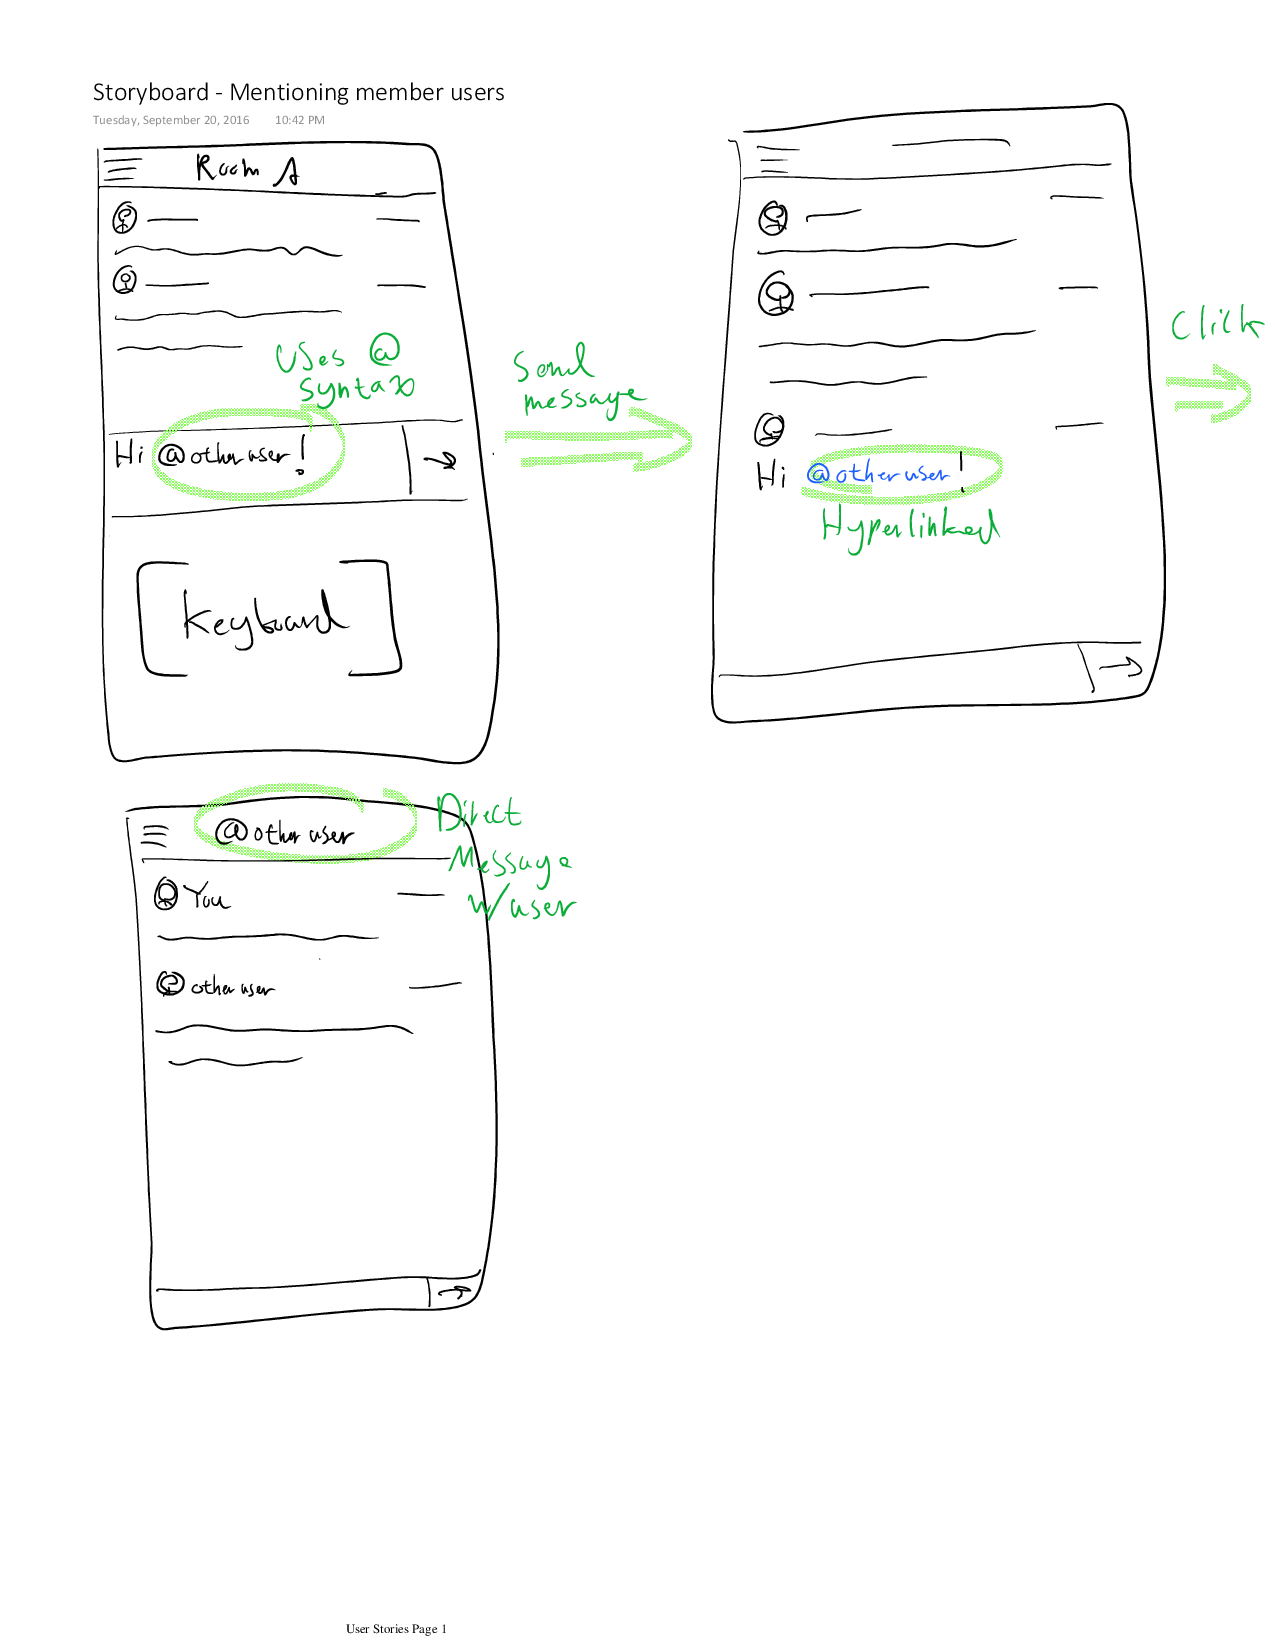 Storyboard - Mentioning member users
Tuesday, September 20, 2016 10:42 PM
Room A
Uses @
syntax
Hi @otheruser!
Keyboard
Send
message
Hi @otheruser!
Hyperlinked
Click
@otheruser
Direct
Message
w/user
You
otheruser
User Stories Page 1